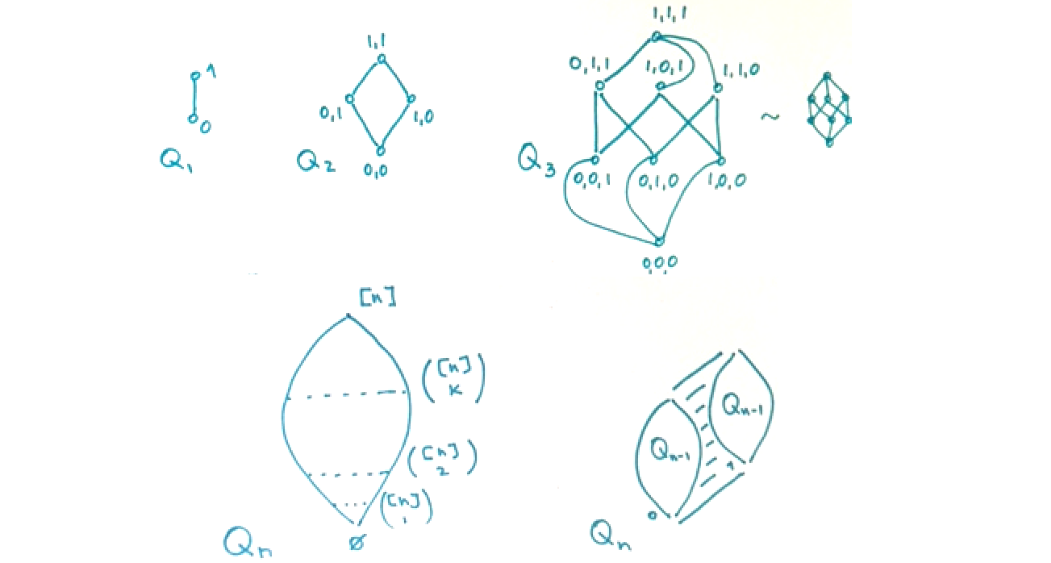 1
0
Q₁
1,1
0,1
1,0
0,0
Q₂
1,1,1
0,1,1
1,0,1
1,1,0
0,0,1
0,1,0
1,0,0
0,0,0
Q₃
~
[n]
([n] k)
([n] 2)
([n] 1)
∅
Qₙ
Qₙ₋₁
Qₙ₋₁
0
1
Qₙ